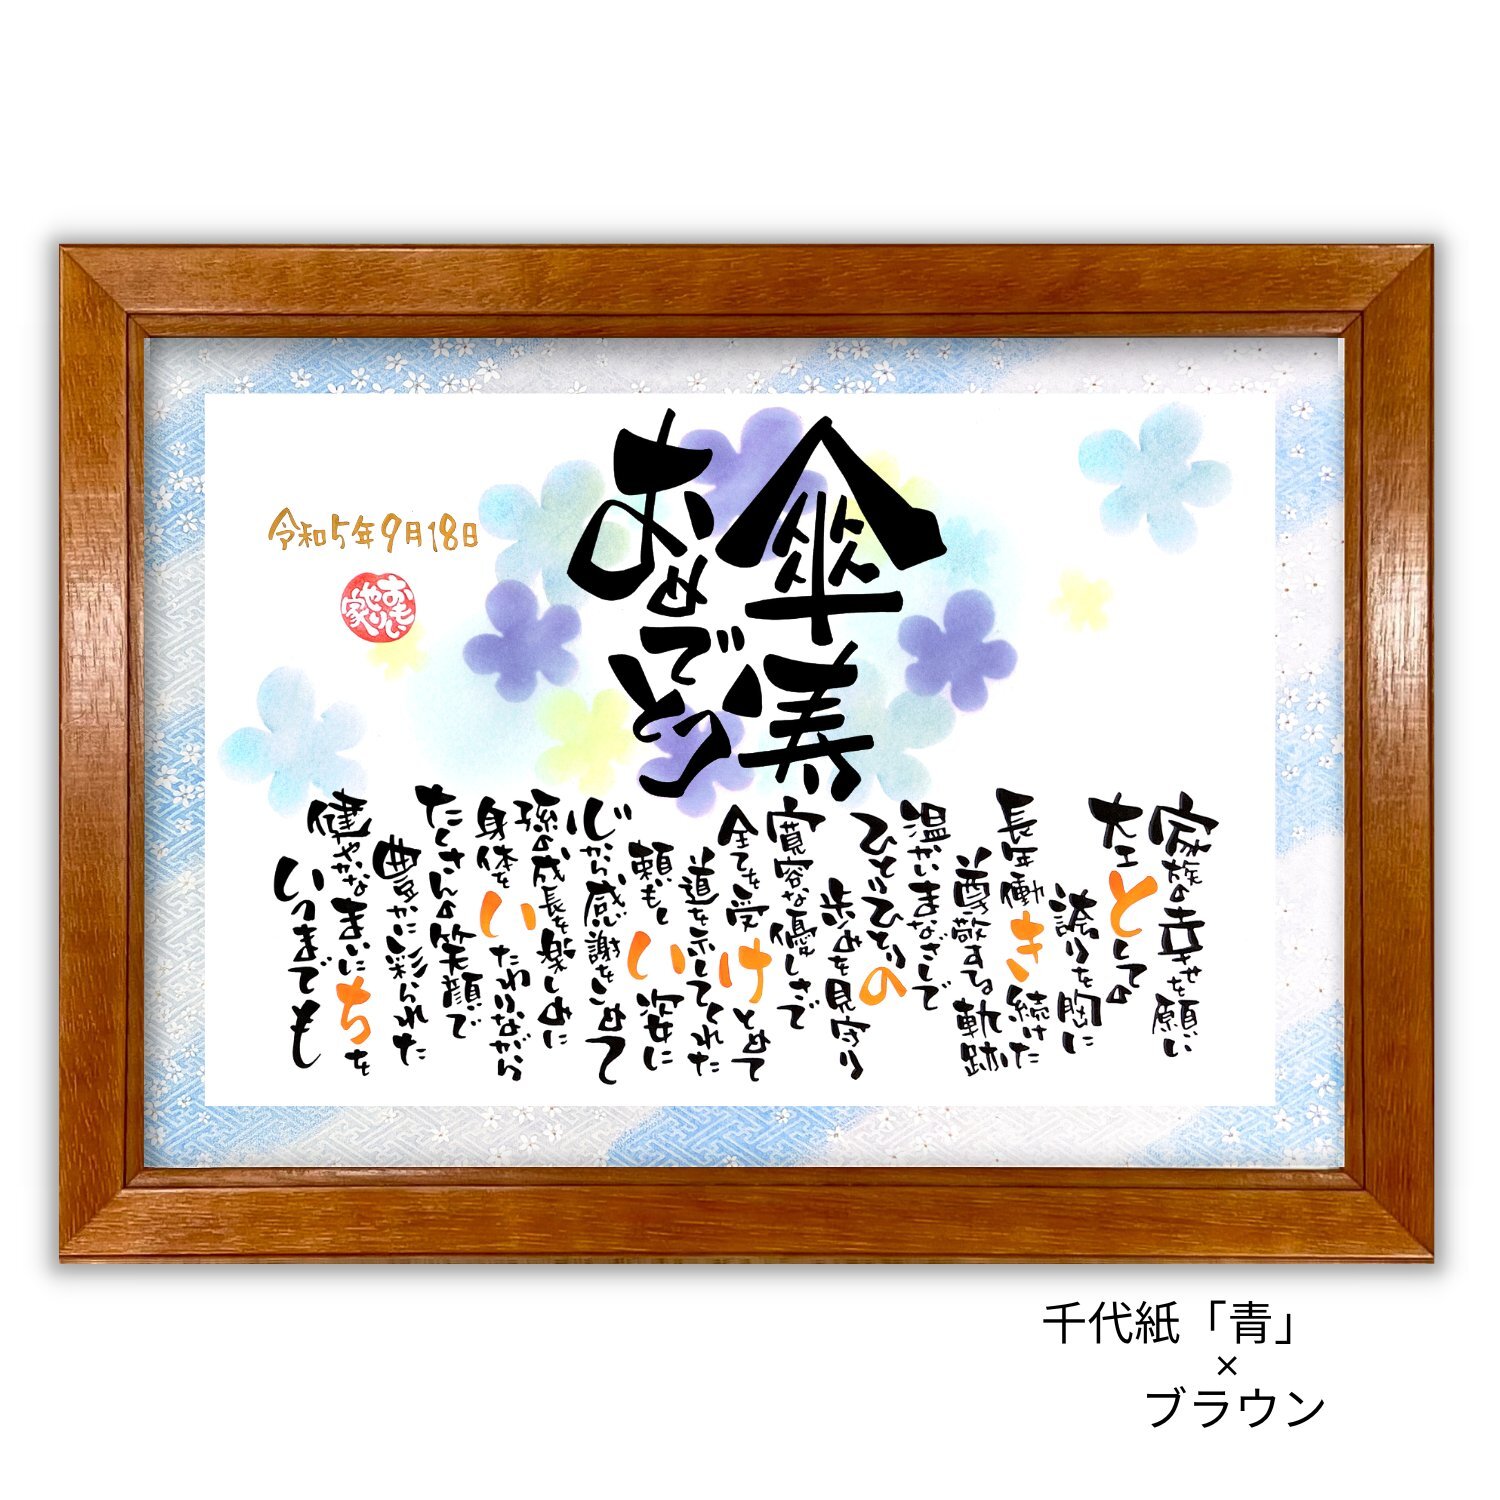 傘寿
おめでとう
家族の幸せを願い
大工としての
誇りを胸に
長年働き続けた
尊敬する軌跡
温かいまなざしで
ひとりひとりの
歩みを見守り
寛容な優しさで
全てを受けとめて
道を示してくれた
頼もしい姿に
心から感謝をこめて
孫の成長を楽しみに
身体をいたわりながら
たくさんの笑顔で
豊かに彩られた
健やかなまいにちを
いつまでも
令和5年9月18日
おもいやり家
千代紙「青」
×
ブラウン